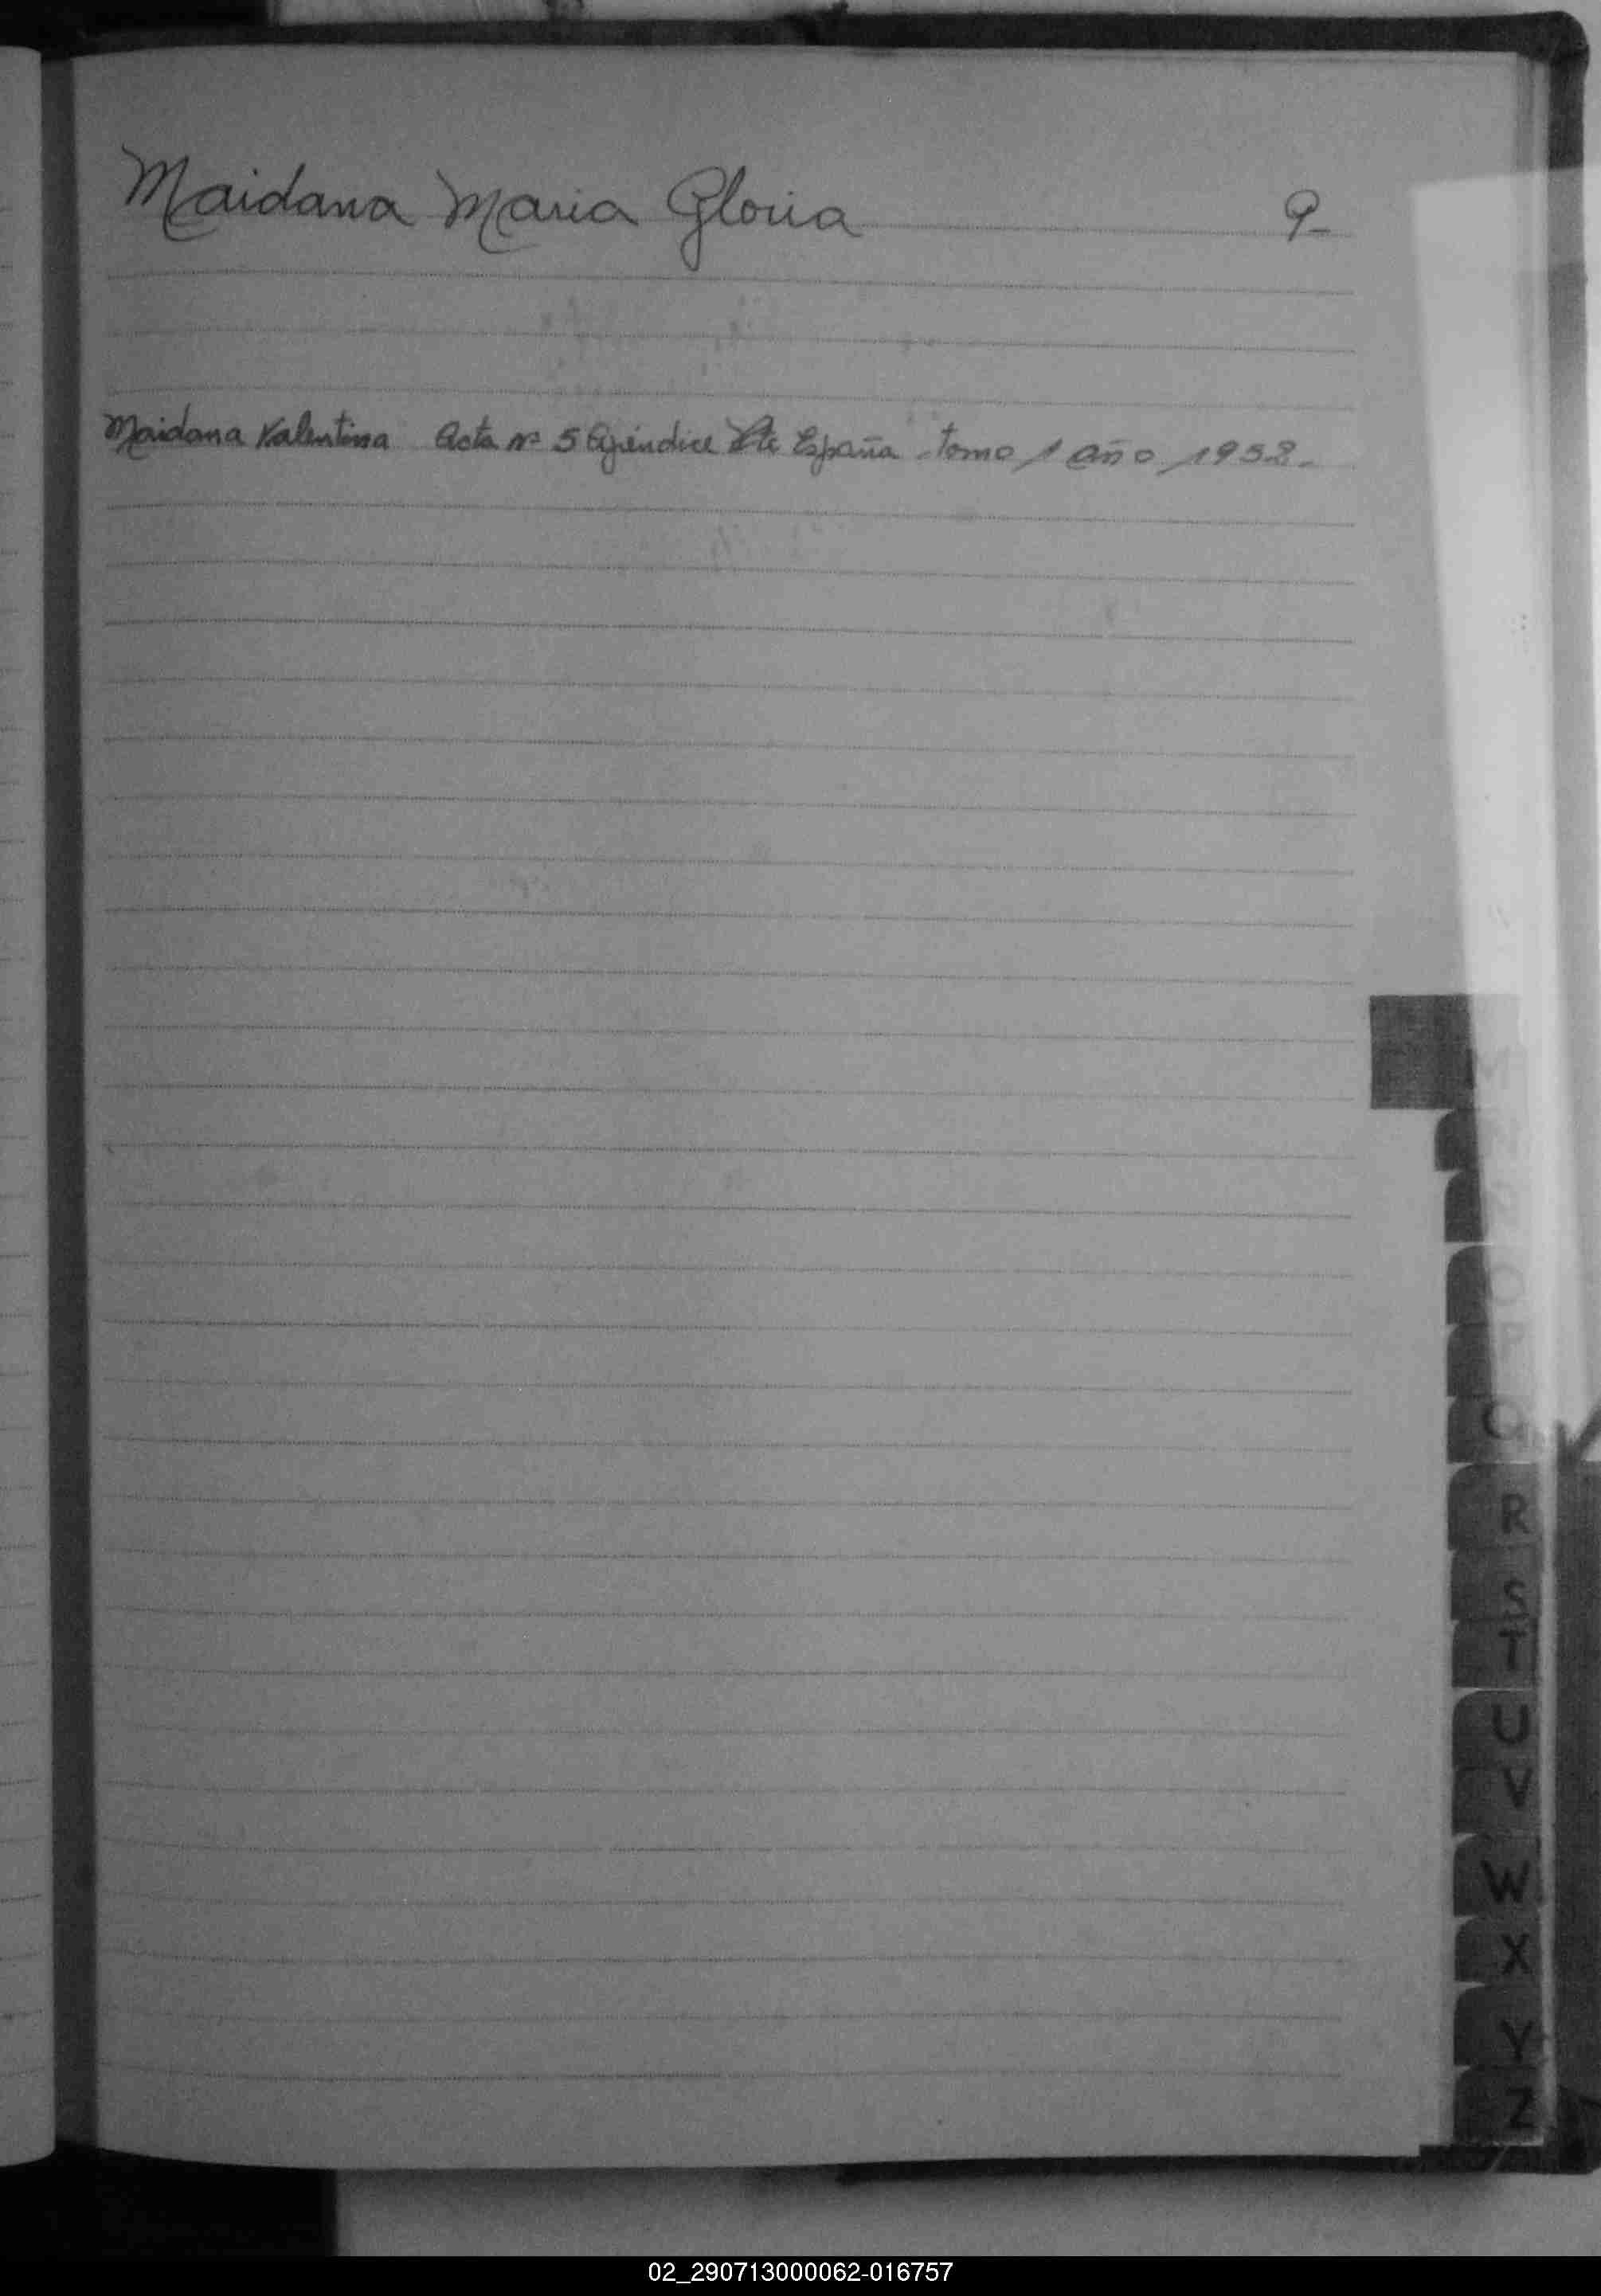 Maidana Maria Gloria 9-
Maidana Valentina Acta nº 5 Apéndice Pte España - tomo 1 año 1952-
M
N
Ñ
O
P
Q
R
S
T
U
V
W
X
Y
Z
02_290713000062-016757